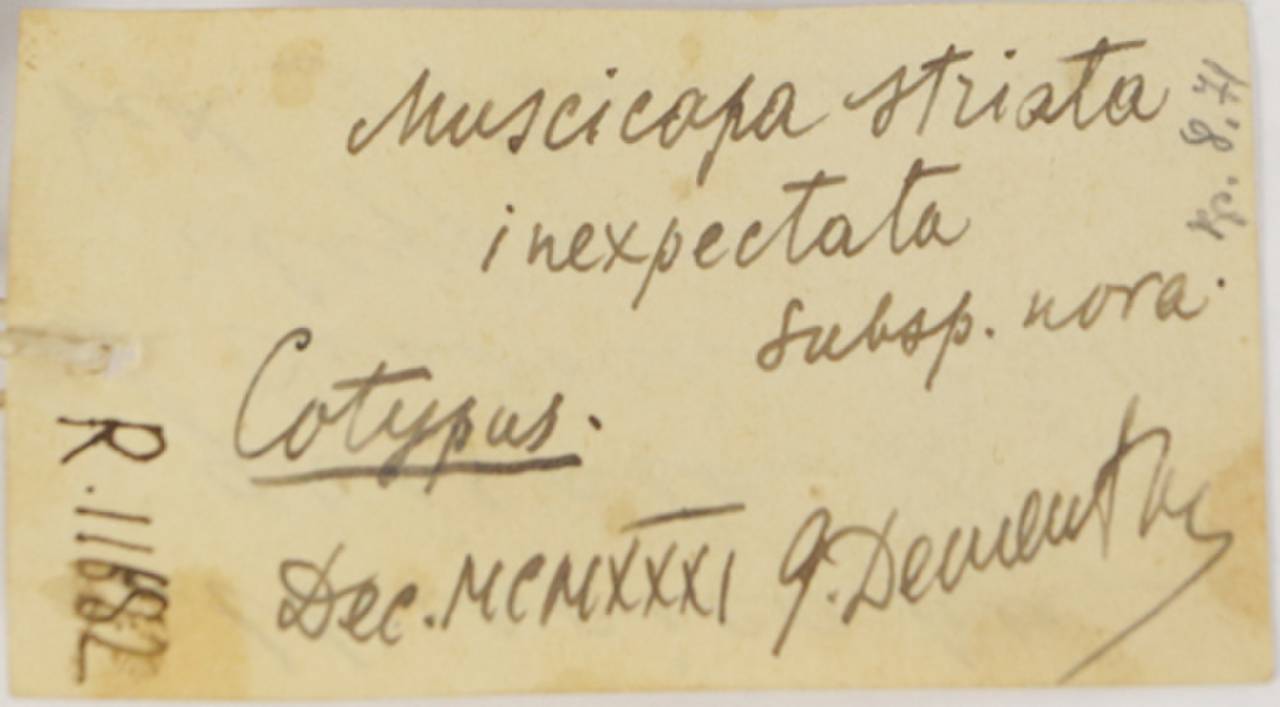 Muscicapa striata
inexpectata
subsp. nova.
Cotypus.
Dec. MCMXXXI G. Dementiev
8.71